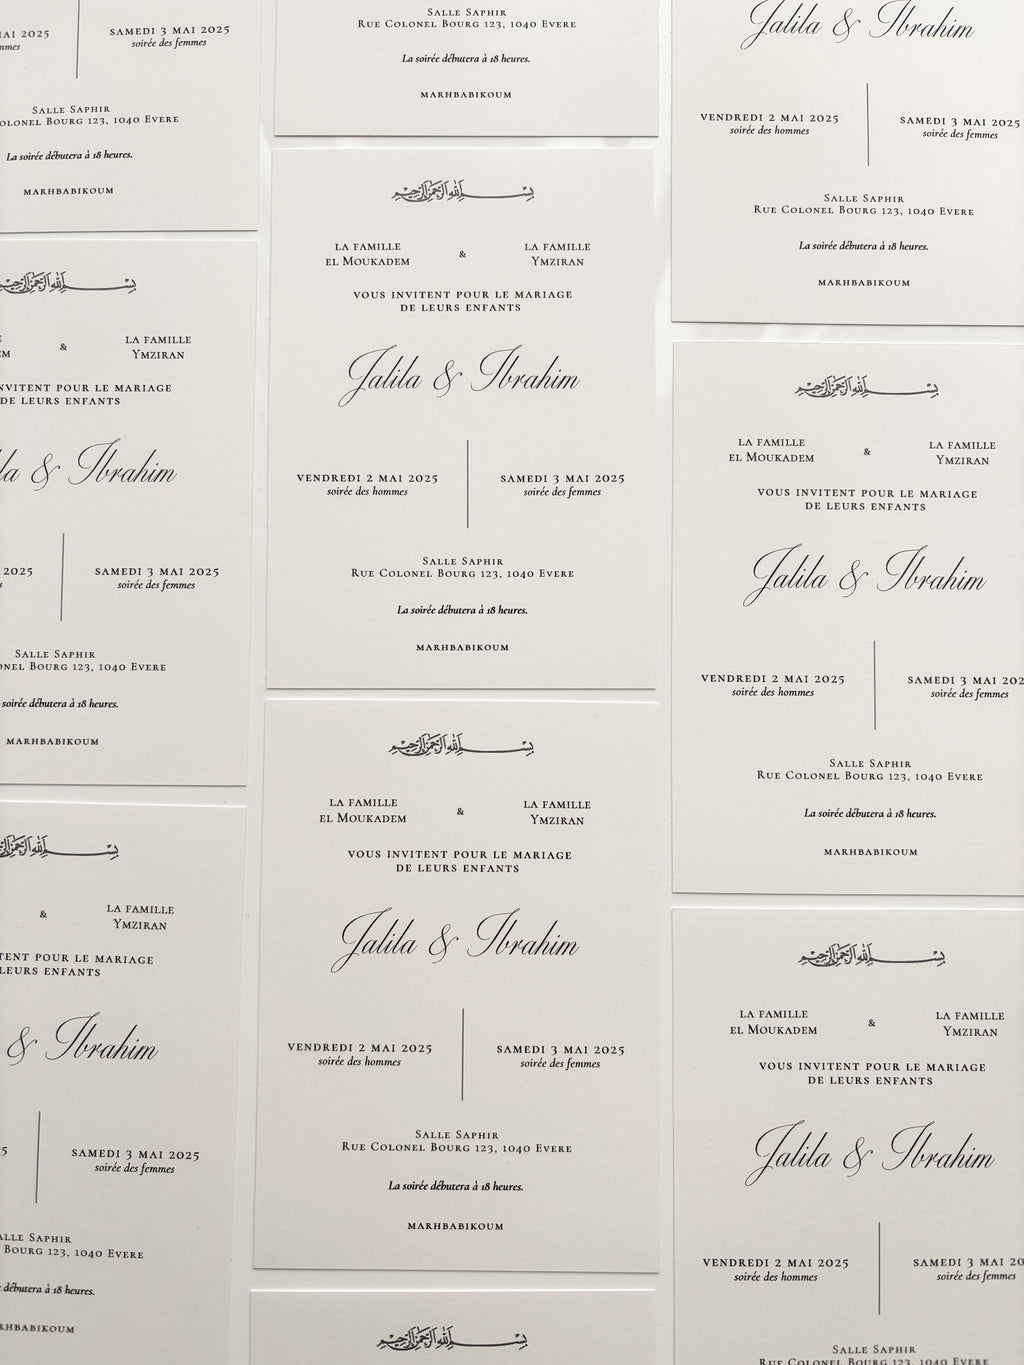 AI 2025
SAMEDI 3 MAI 2025
soirée des femmes
SALLE SAPHIR
COLONEL BOURG 123, 1040 EVERE
La soirée débutera à 18 heures.
MARHBABIKOUM
بسم الله الرحمن الرحيم
&
LA FAMILLE
YMZIRAN
NVITENT POUR LE MARIAGE
DE LEURS ENFANTS
la & Ibrahim
2025
SAMEDI 3 MAI 2025
soirée des femmes
SALLE SAPHIR
ONEL BOURG 123, 1040 EVERE
soirée débutera à 18 heures.
MARHBABIKOUM
بسم الله الرحمن الرحيم
&
LA FAMILLE
YMZIRAN
TENT POUR LE MARIAGE
LEURS ENFANTS
& Ibrahim
5
SAMEDI 3 MAI 2025
soirée des femmes
ALLE SAPHIR
BOURG 123, 1040 EVERE
débutera à 18 heures.
RHBABIKOUM
SALLE SAPHIR
RUE COLONEL BOURG 123, 1040 EVERE
La soirée débutera à 18 heures.
MARHBABIKOUM
بسم الله الرحمن الرحيم
LA FAMILLE
EL MOUKADEM
&
LA FAMILLE
YMZIRAN
VOUS INVITENT POUR LE MARIAGE
DE LEURS ENFANTS
Jalila & Ibrahim
VENDREDI 2 MAI 2025
soirée des hommes
SAMEDI 3 MAI 2025
soirée des femmes
SALLE SAPHIR
RUE COLONEL BOURG 123, 1040 EVERE
La soirée débutera à 18 heures.
MARHBABIKOUM
بسم الله الرحمن الرحيم
LA FAMILLE
EL MOUKADEM
&
LA FAMILLE
YMZIRAN
VOUS INVITENT POUR LE MARIAGE
DE LEURS ENFANTS
Jalila & Ibrahim
VENDREDI 2 MAI 2025
soirée des hommes
SAMEDI 3 MAI 2025
soirée des femmes
SALLE SAPHIR
RUE COLONEL BOURG 123, 1040 EVERE
La soirée débutera à 18 heures.
MARHBABIKOUM
بسم الله الرحمن الرحيم
Jalila & Ibrahim
VENDREDI 2 MAI 2025
soirée des hommes
SAMEDI 3 MAI 2025
soirée des femmes
SALLE SAPHIR
RUE COLONEL BOURG 123, 1040 EVERE
La soirée débutera à 18 heures.
MARHBABIKOUM
بسم الله الرحمن الرحيم
LA FAMILLE
EL MOUKADEM
&
LA FAMILLE
YMZIRAN
VOUS INVITENT POUR LE MARIAGE
DE LEURS ENFANTS
Jalila & Ibrahim
VENDREDI 2 MAI 2025
soirée des hommes
SAMEDI 3 MAI 202
soirée des femmes
SALLE SAPHIR
RUE COLONEL BOURG 123, 1040 EVERE
La soirée débutera à 18 heures.
MARHBABIKOUM
بسم الله الرحمن الرحيم
LA FAMILLE
EL MOUKADEM
&
LA FAMILLE
YMZIRAN
VOUS INVITENT POUR LE MARIAGE
DE LEURS ENFANTS
Jalila & Ibrahim
VENDREDI 2 MAI 2025
soirée des hommes
SAMEDI 3 MAI 20
soirée des femmes
SALLE SAPHIR
RUE COLONEL BOURG 123, 1040 EVERE